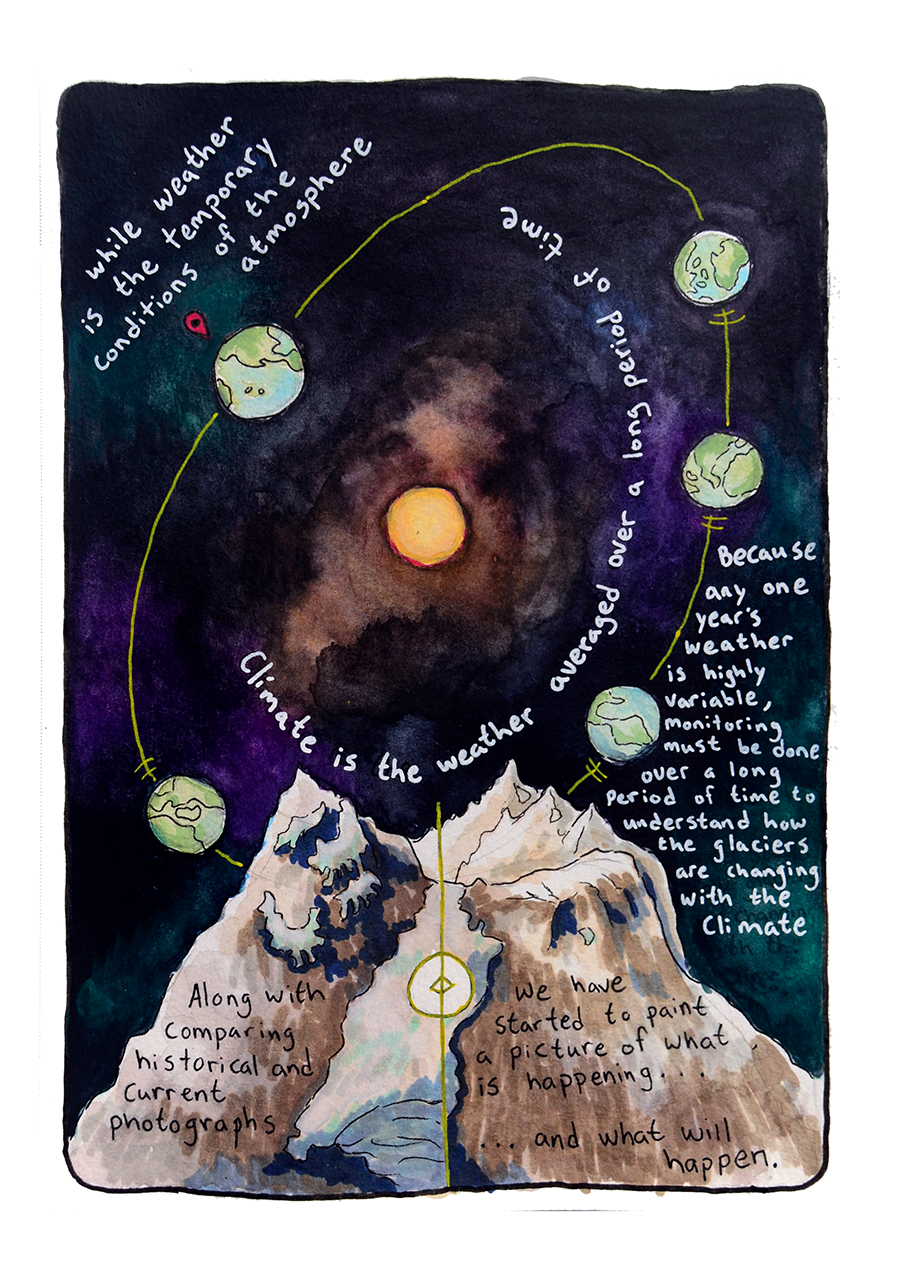 Climate is the weather averaged over a long period of time
while weather
is the temporary
conditions of the
atmosphere
Because
any one
year's
weather
is highly
variable,
monitoring
must be done
over a long
period of time to
understand how
the glaciers
are changing
with the
Climate
Along with
comparing
historical and
current
photographs
we have
started to paint
a picture of what
is happening...
... and what will
happen.